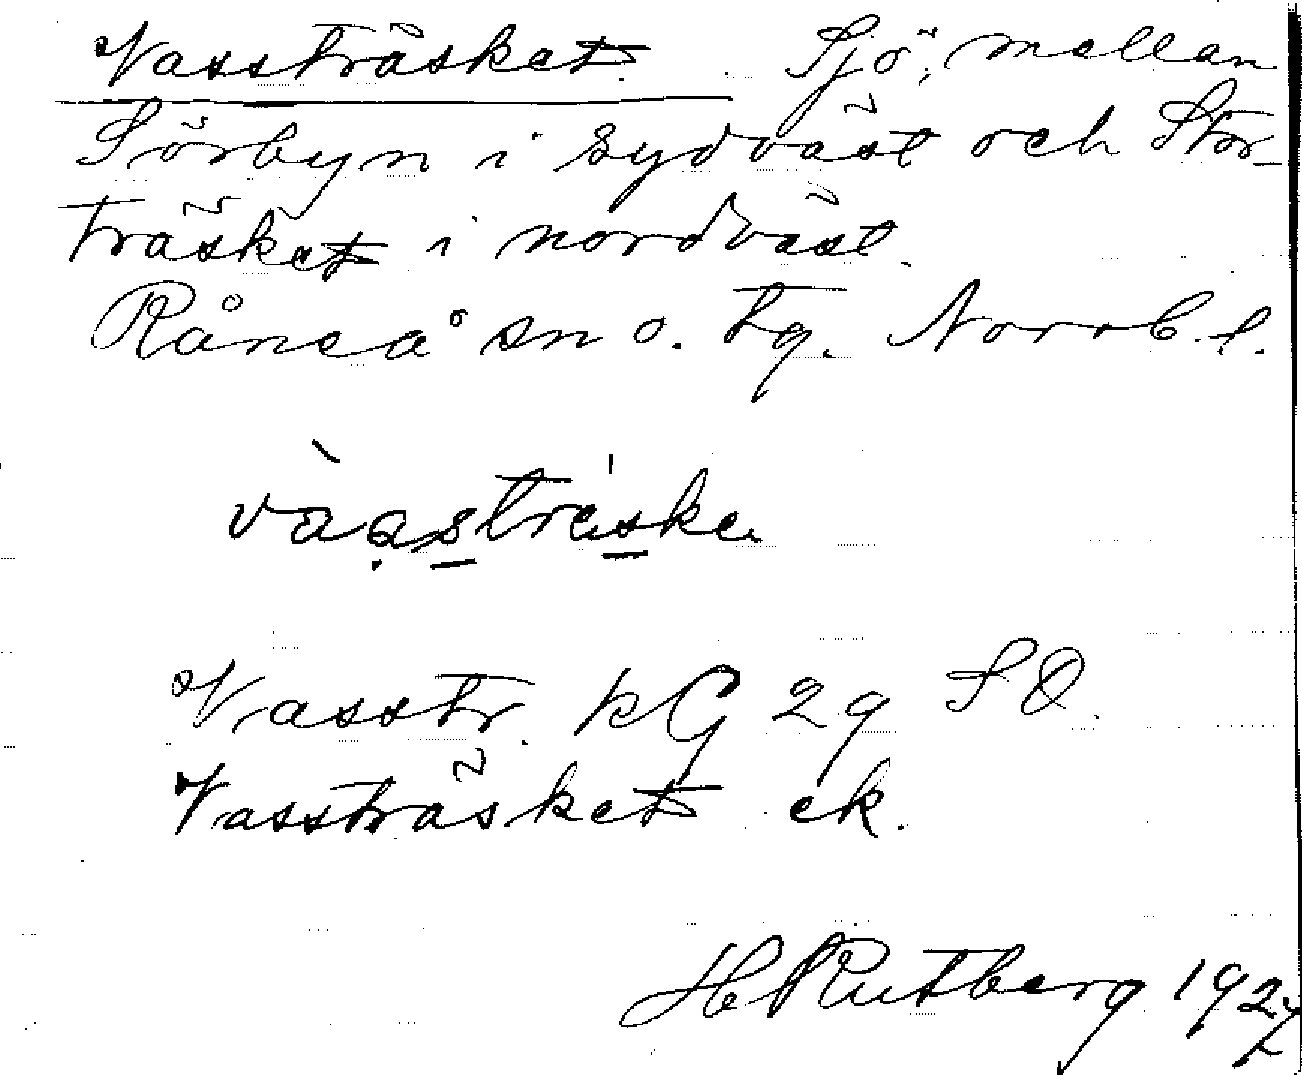 Vassträsket. Sjö, mellan
Sörbyn i sydväst och Stor-
träsket i nordväst.
Råneå sn o. tg. Norrb. l.
Vasstr. kG 29 SO.
Vassträsket ek.
H Rutberg 1927